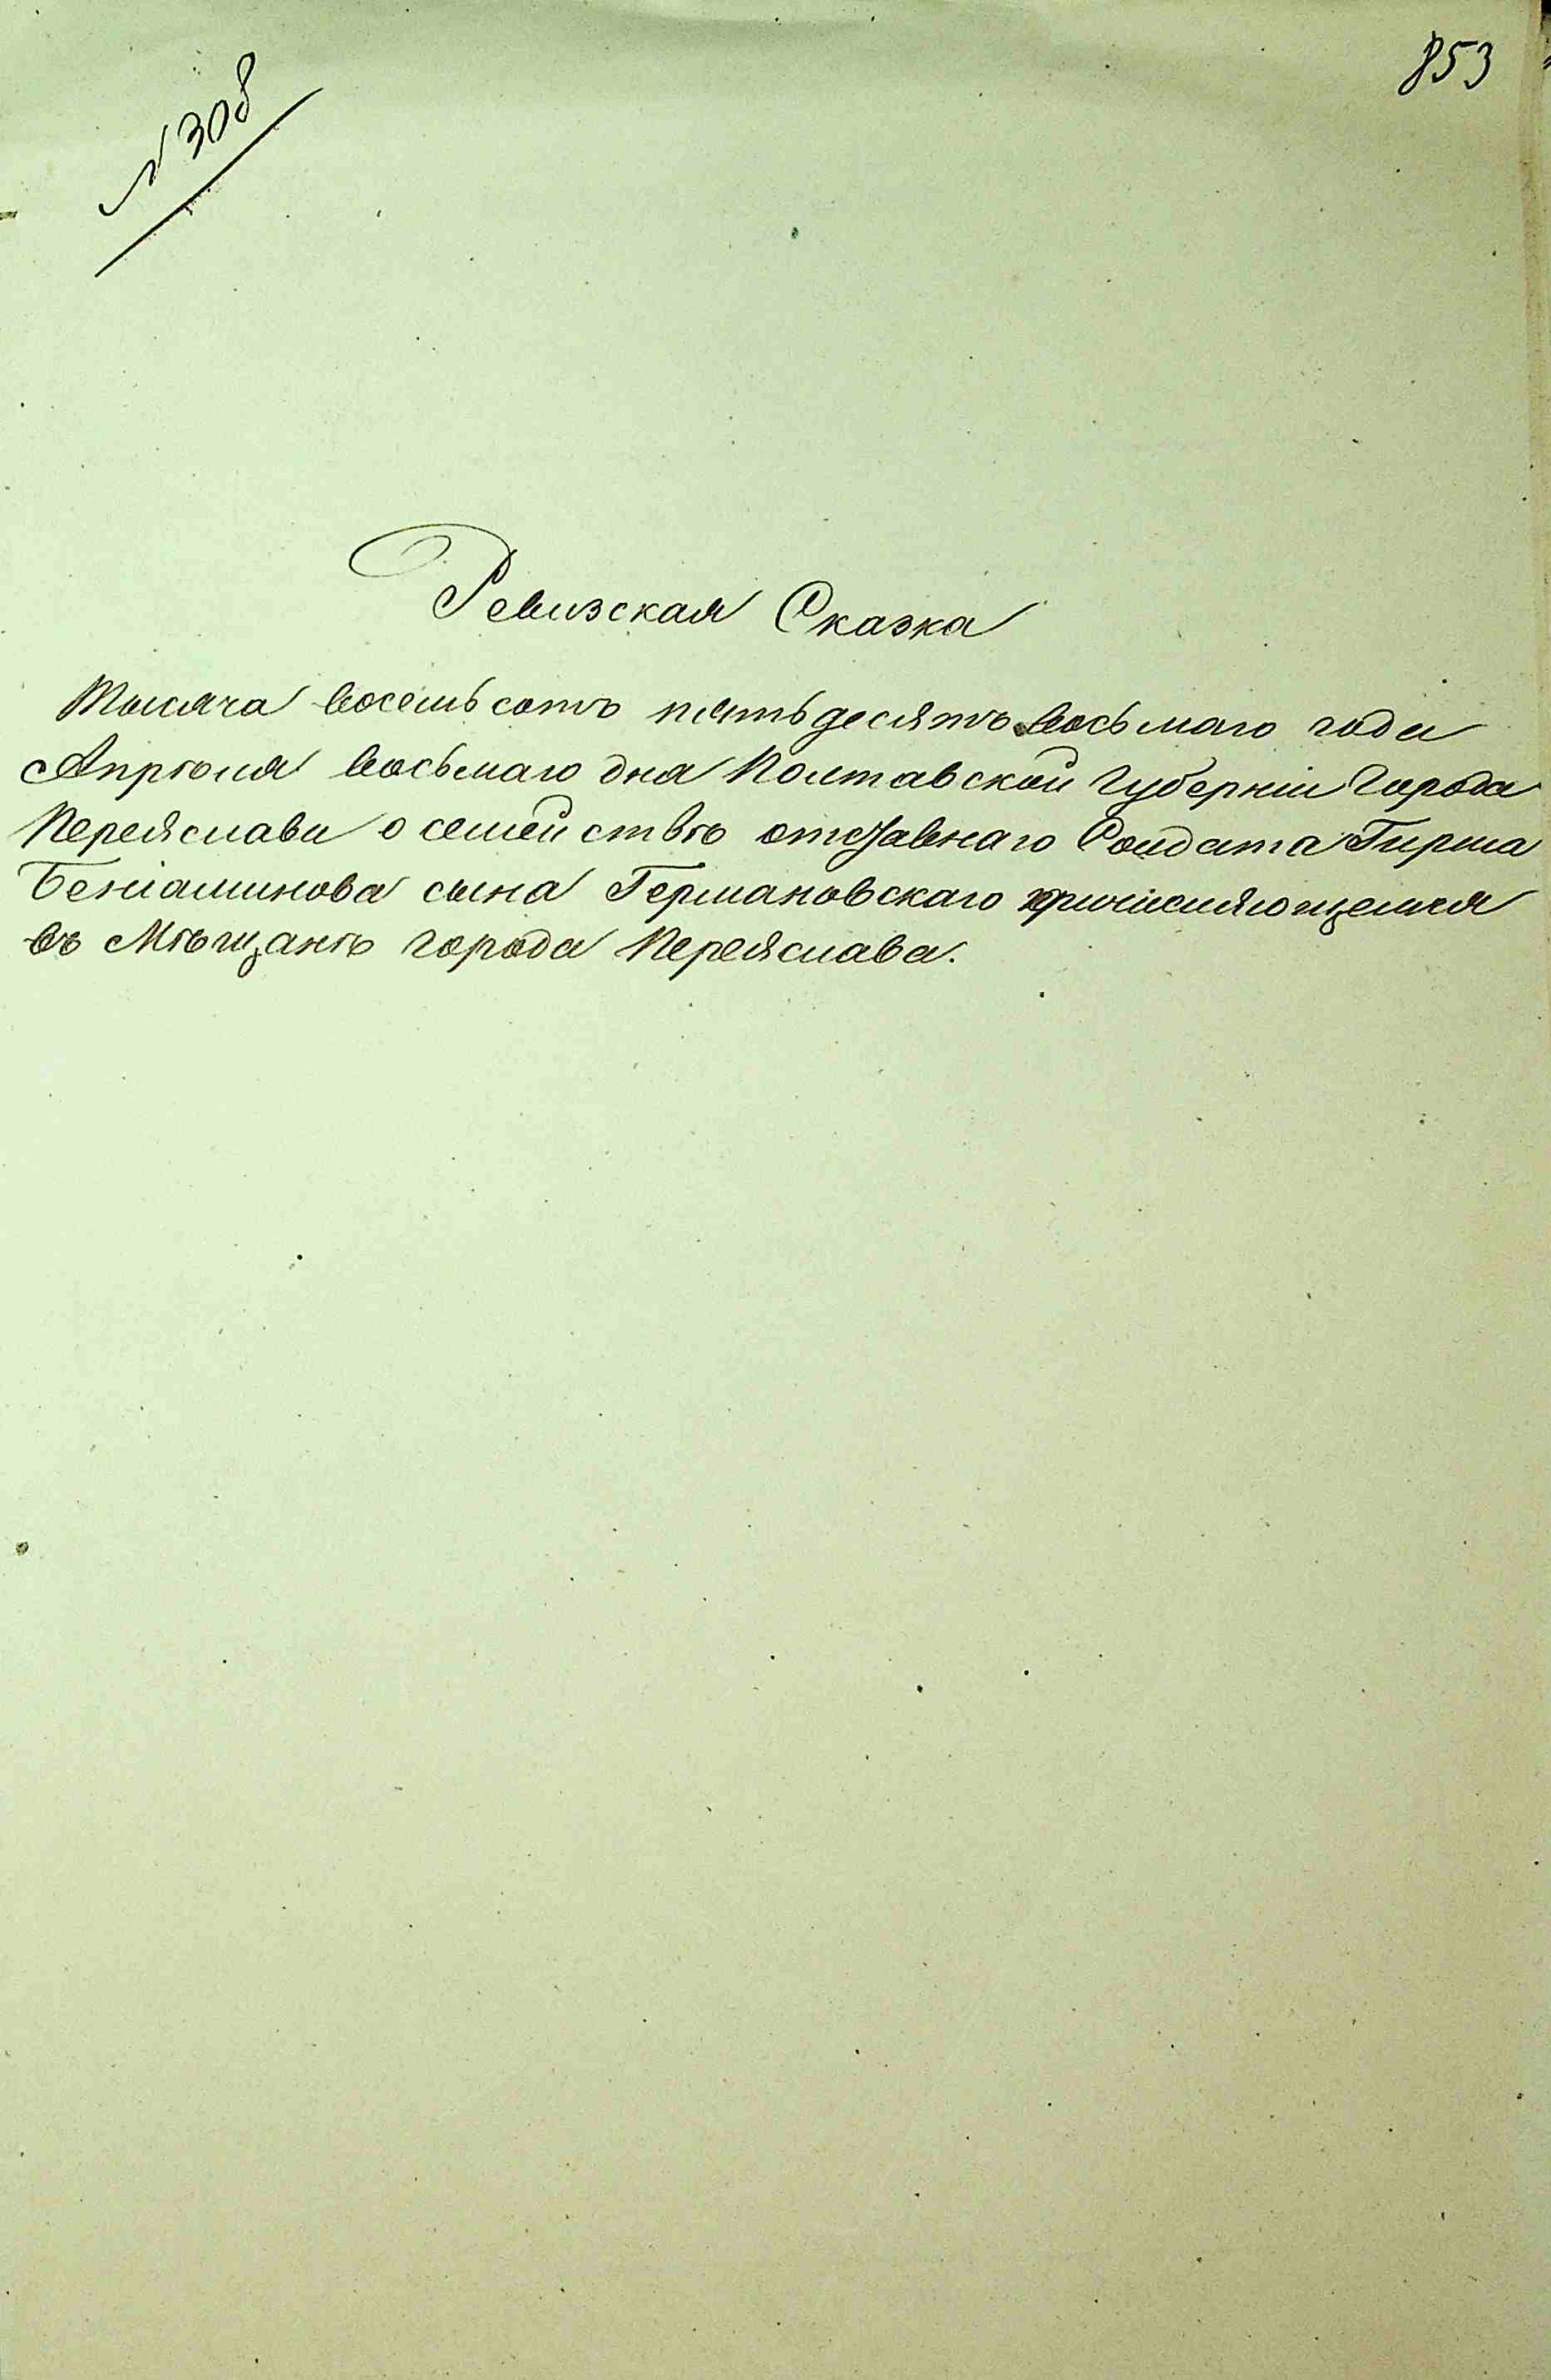 853
№ 308
Ревизская Сказка
Тысяча восемьсотъ пятьдесятъ восьмаго года
Апрѣля восьмаго дня Полтавской Губерніи Города
Переяслава о семействѣ отставнаго Солдата Гирша
Беніаминова сына Германовскаго причисляющемся
въ Мѣщане города Переяслава.